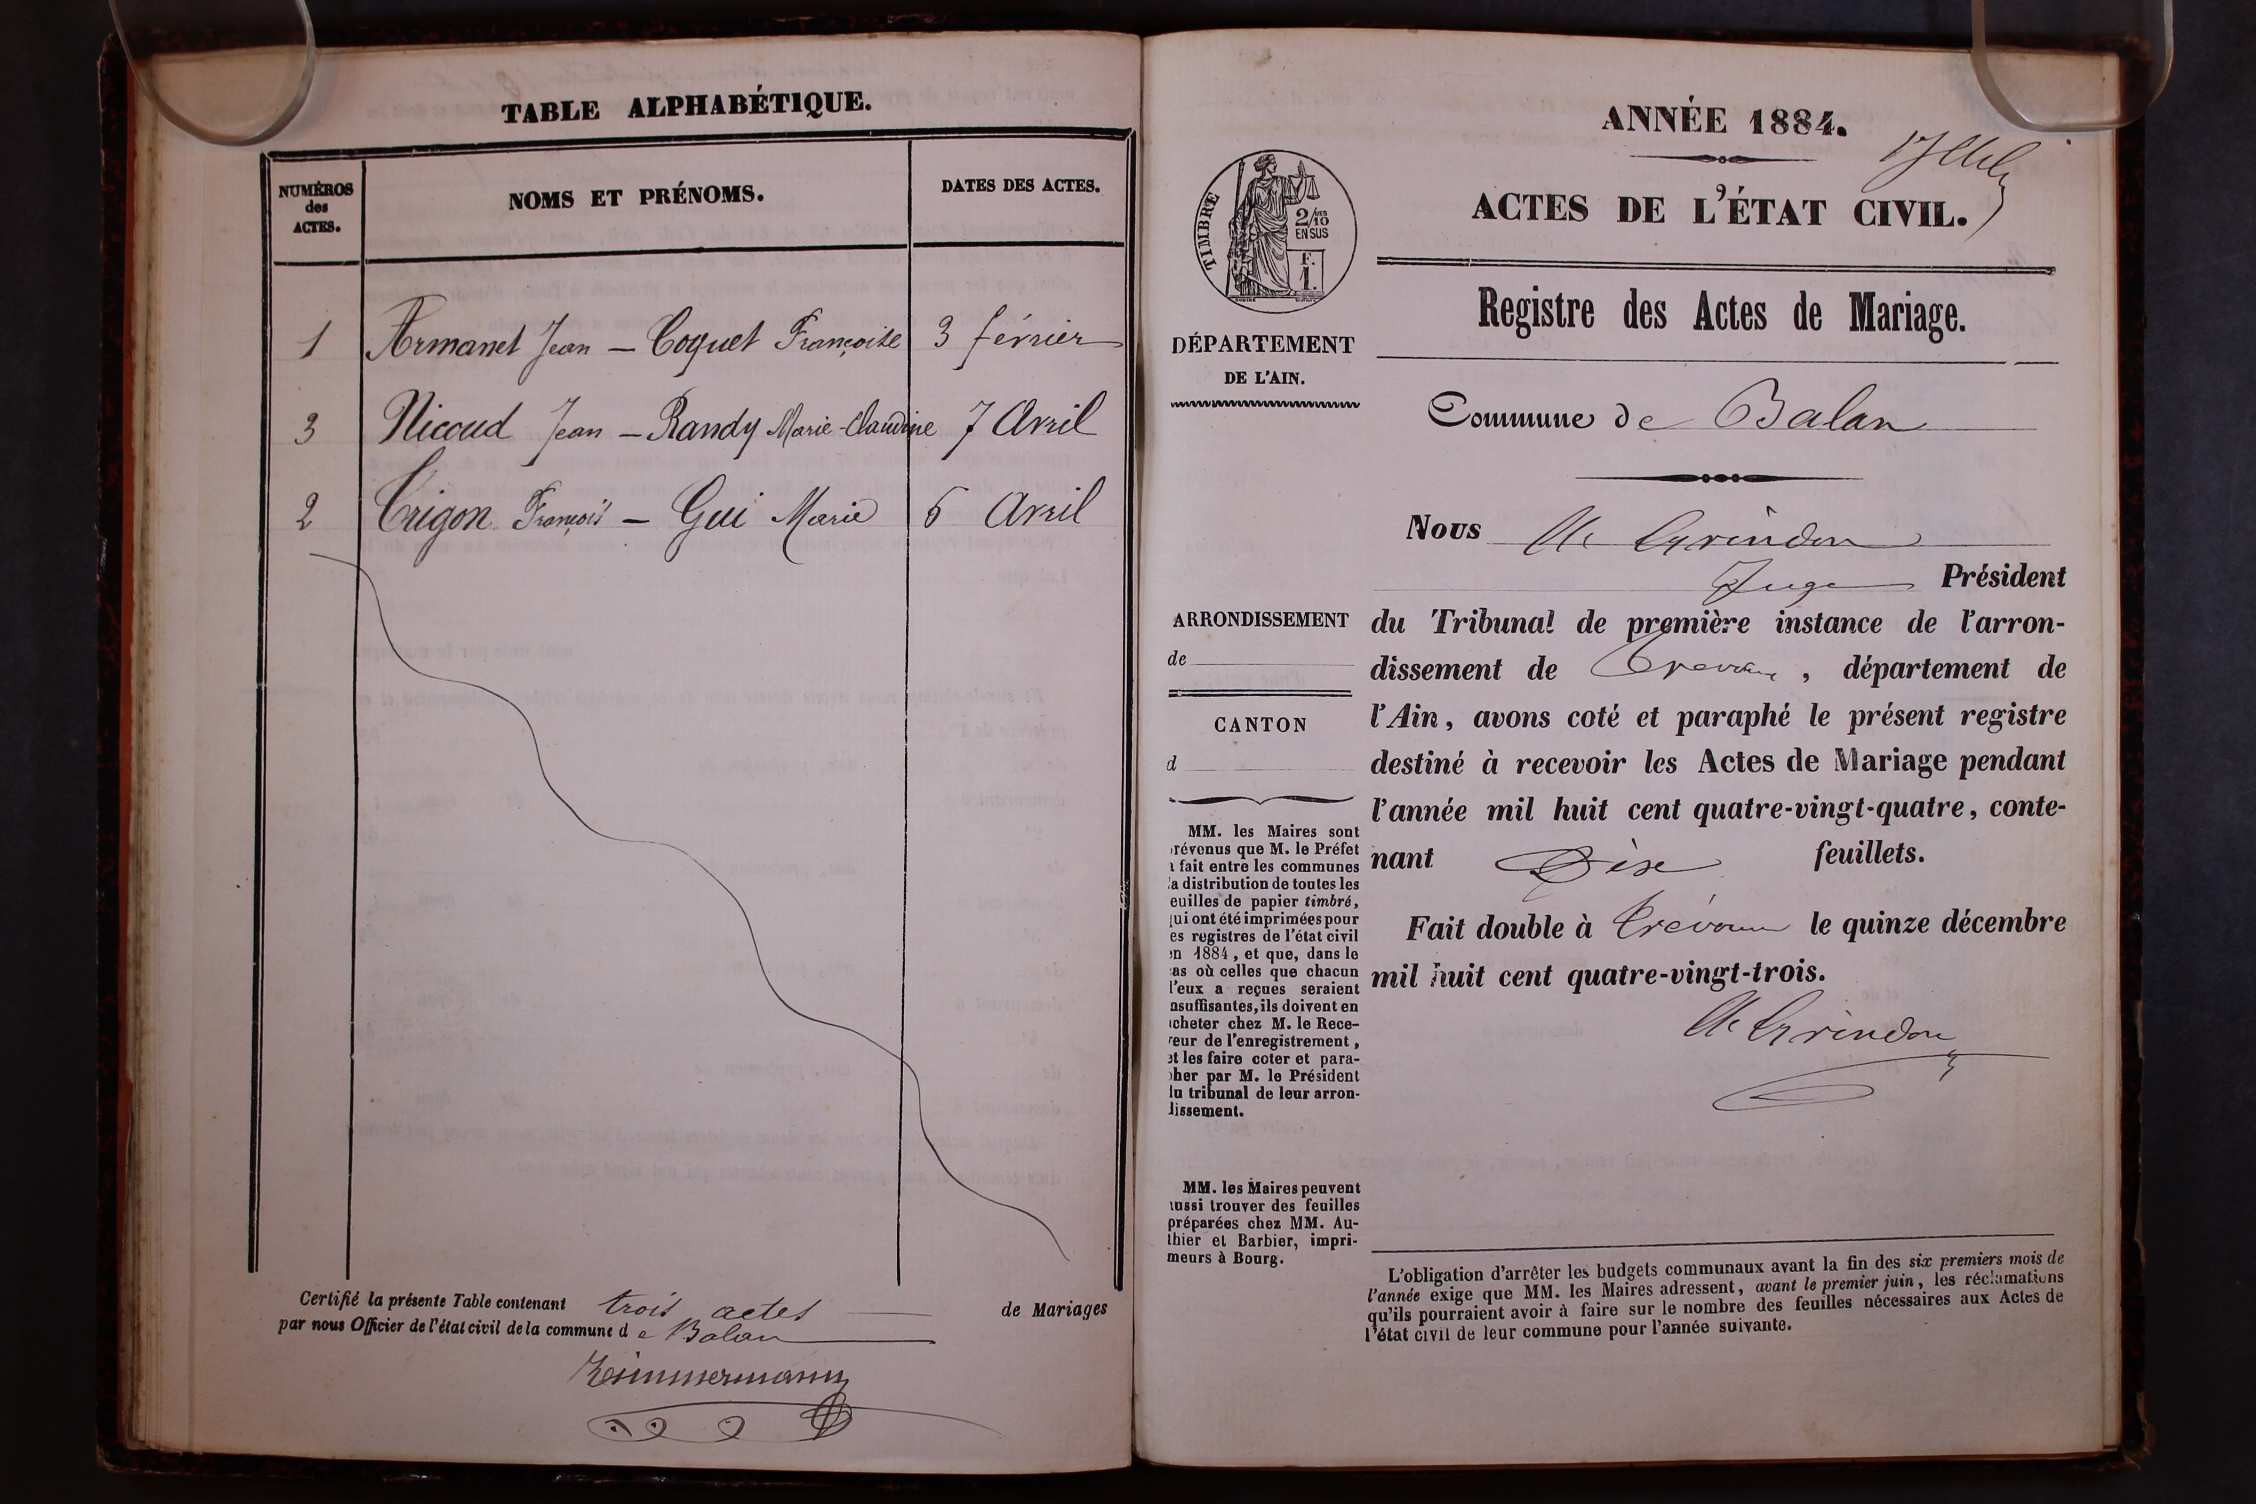 TABLE ALPHABÉTIQUE.
NUMÉROS
des
ACTES.
NOMS ET PRÉNOMS.
DATES DES ACTES.
1 Armanet Jean — Coquet Françoise 3 février
3 Nicoud Jean — Randy Marie-Claudine 7 Avril
2 Trigon François — Gui Marie 6 Avril
Certifié la présente Table contenant trois actes de Mariages
par nous Officier de l'état civil de la commune d e Balan
Zimmermann
ANNÉE 1884.
ACTES DE L'ÉTAT CIVIL.
TIMBRE
2/10
EN SUS
F.
1.
Registre des Actes de Mariage.
DÉPARTEMENT
DE L'AIN.
Commune de Balan
Nous
Juge Président
ARRONDISSEMENT
de
CANTON
d
du Tribunal de première instance de l'arron-
dissement de Trévoux, département de
l'Ain, avons coté et paraphé le présent registre
destiné à recevoir les Actes de Mariage pendant
l'année mil huit cent quatre-vingt-quatre, conte-
nant Dix feuillets.
Fait double à Trévoux le quinze décembre
mil huit cent quatre-vingt-trois.
MM. les Maires sont
révenus que M. le Préfet
a fait entre les communes
la distribution de toutes les
euilles de papier timbré,
qui ont été imprimées pour
es registres de l'état civil
en 1884, et que, dans le
as où celles que chacun
l'eux a reçues seraient
nsuffisantes, ils doivent en
cheter chez M. le Rece-
veur de l'enregistrement,
et les faire coter et para-
pher par M. le Président
du tribunal de leur arron-
dissement.
MM. les Maires peuvent
ussi trouver des feuilles
préparées chez MM. Au-
thier et Barbier, impri-
meurs à Bourg.
L'obligation d'arrêter les budgets communaux avant la fin des six premiers mois de
l'année exige que MM. les Maires adressent, avant le premier juin, les réclamations
qu'ils pourraient avoir à faire sur le nombre des feuilles nécessaires aux Actes de
l'état civil de leur commune pour l'année suivante.